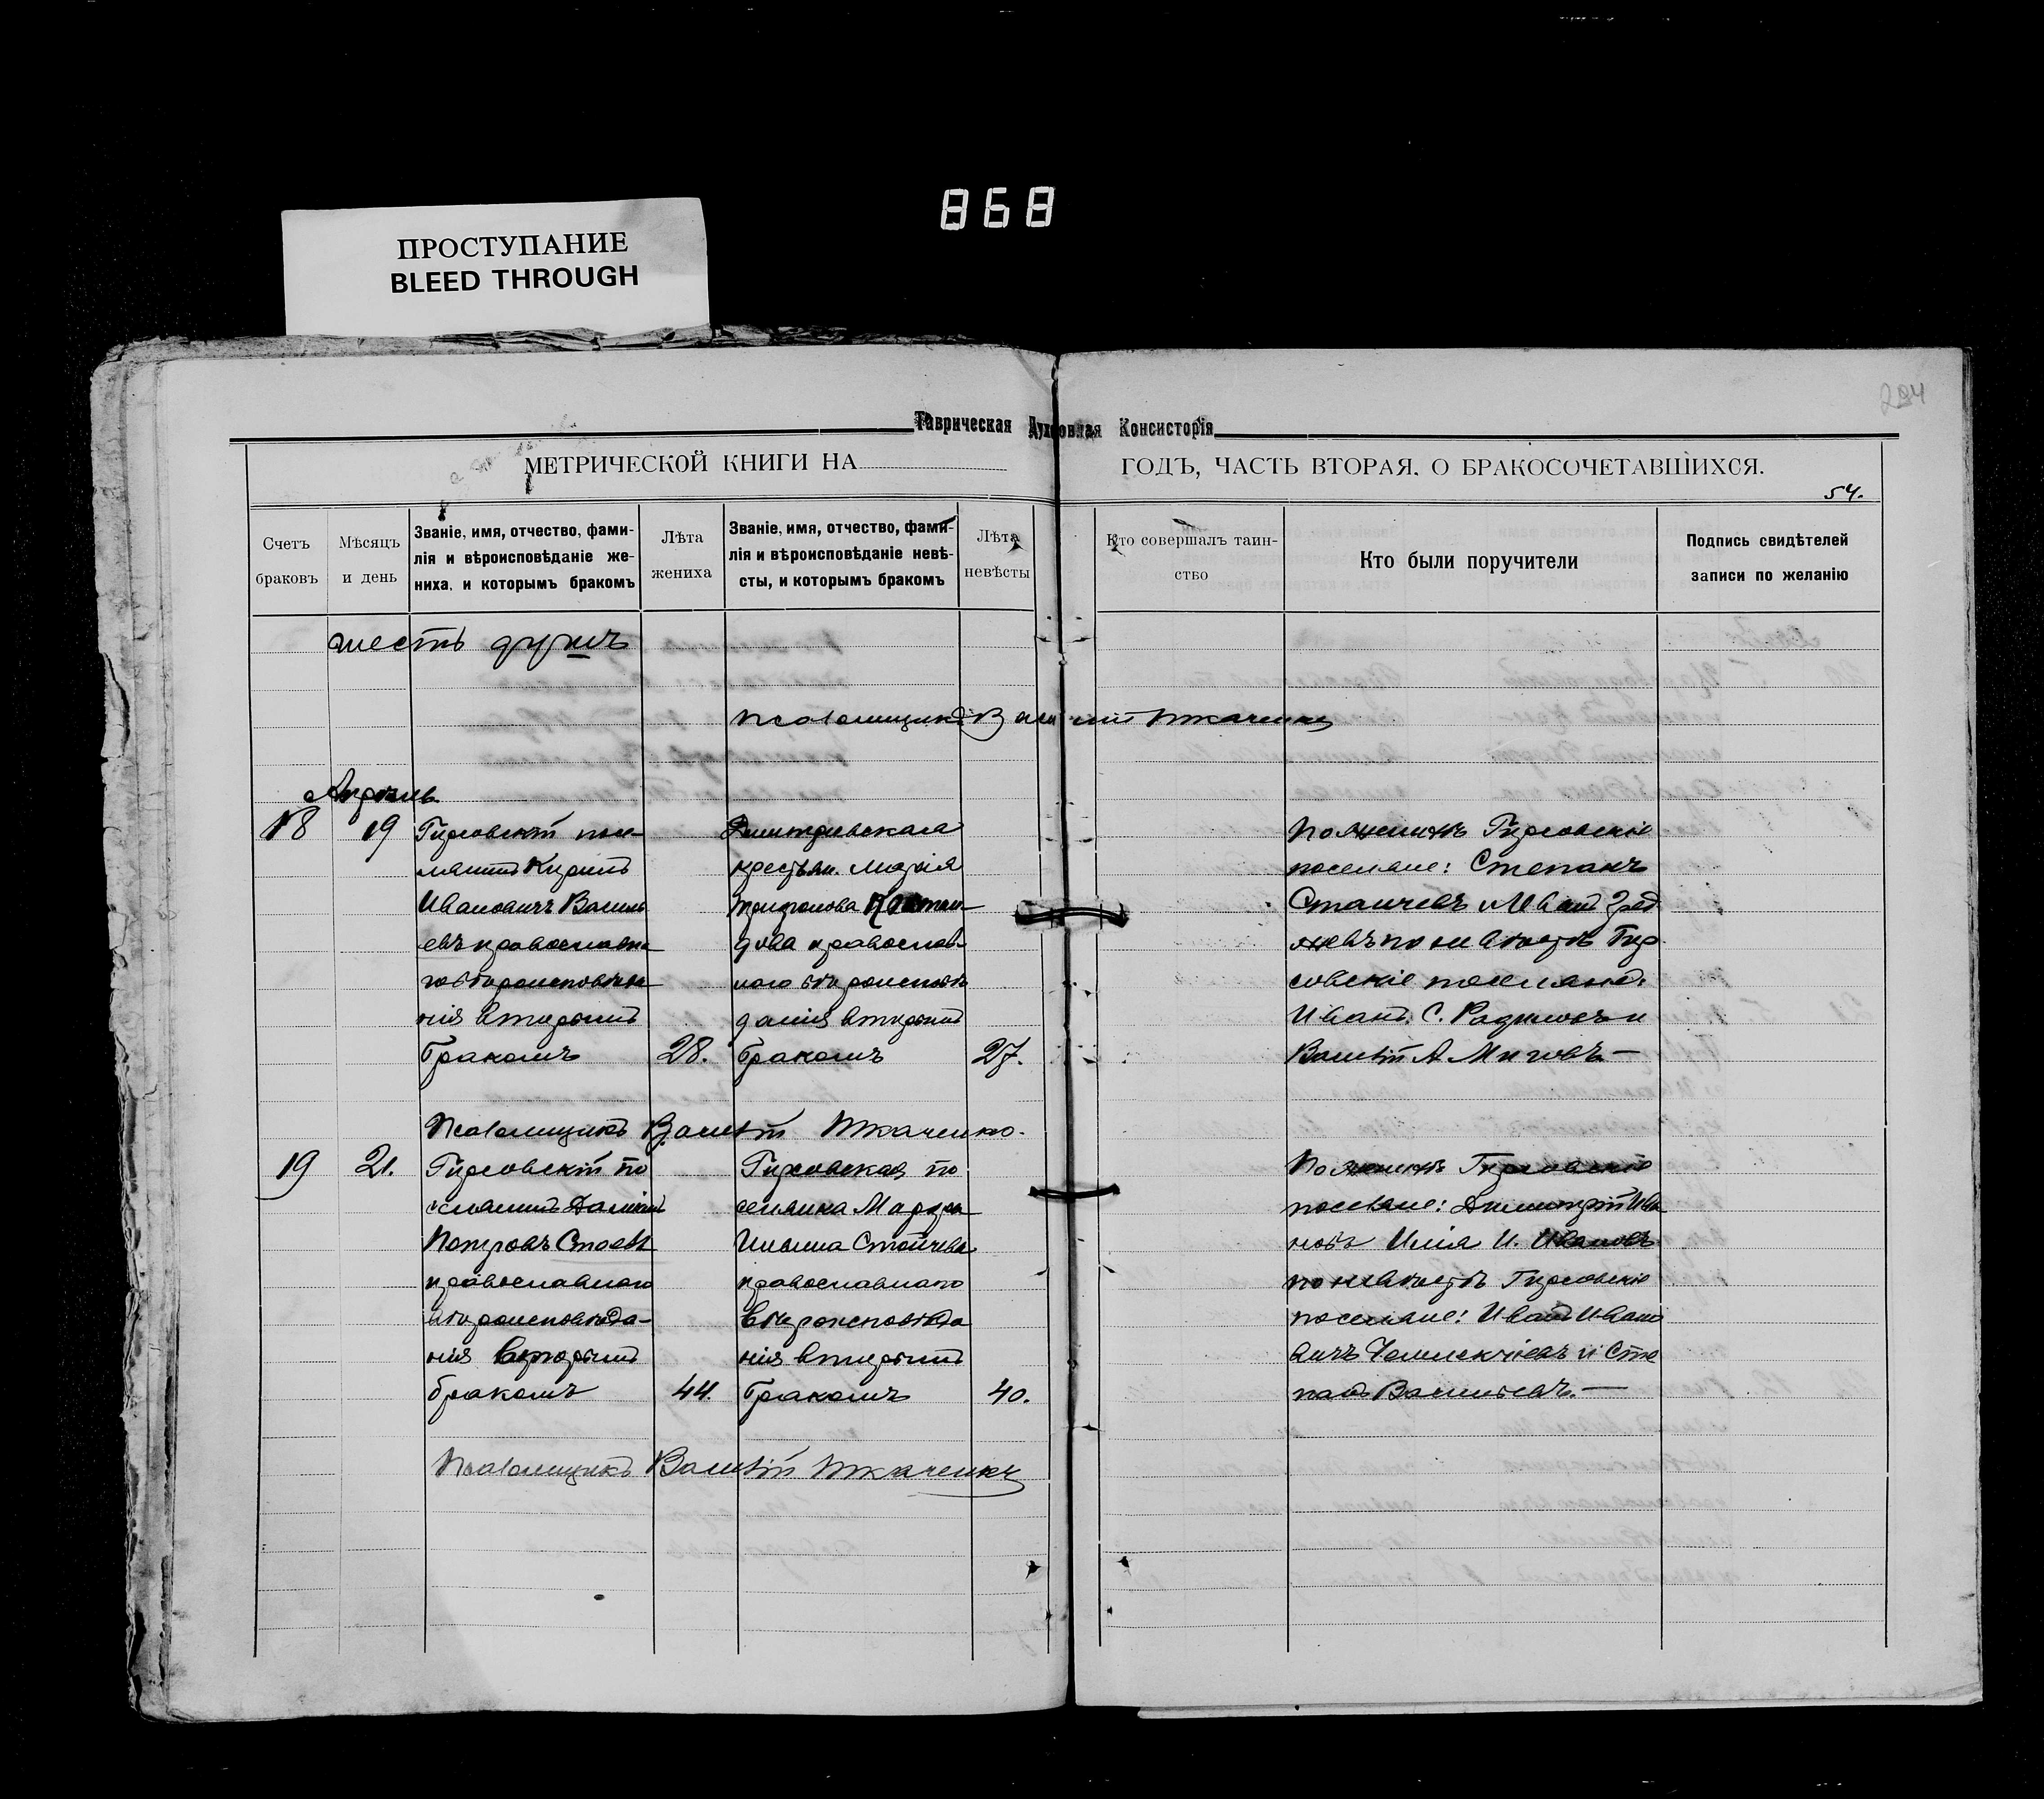 868
ПРОСТУПАНИЕ
BLEED THROUGH
Таврическая Духовная Консисторія
МЕТРИЧЕСКОЙ КНИГИ НА
ГОДЪ, ЧАСТЬ ВТОРАЯ, О БРАКОСОЧЕТАВШИХСЯ.
54.
Счетъ
браковъ
Мѣсяцъ
и день
Званіе, имя, отчество, фами-
лія и вѣроисповѣданіе же-
ниха, и которымъ бракомъ
Лѣта
жениха
Званіе, имя, отчество, фами-
лія и вѣроисповѣданіе невѣ-
сты, и которымъ бракомъ
Лѣта
невѣсты
Кто совершалъ таин-
ство
Кто были поручители
Подпись свидѣтелей
записи по желанію
шесть душъ
Псаломщикъ Василій Ткаченко
Апрѣль
18
19
Гирсовскій посе-
лянинъ Кирилъ
Ивановичъ Василь
евъ православна
го вѣроисповѣда
нія вторымъ
бракомъ
28.
Димитріевская
крестьян. Марія
Трифонова
дова православ-
наго вѣроисповѣ
данія вторымъ
бракомъ
27.
По женихѣ Гирсовскіе
поселяне: Степанъ
Стаичевъ и Иванъ
по невѣстѣ Гир
совскіе поселяне:
Иванъ. С. Радиловъ и
Василій А. Миговъ—
Псаломщикъ Василій Ткаченко.
19
21.
Гирсовскій по
селянинъ Даміанъ
Петровъ Стоевъ
православнаго
вѣроисповѣда-
нія вторымъ
бракомъ
44.
Гирсовская по
селянка Марфа
Ильина Стойчева
православнаго
вѣроисповѣда
нія вторымъ
бракомъ
40.
По женихѣ Гирсовскіе
поселяне: Димитрій Ива
новъ Илія И. Ивановъ
по невѣстѣ Гирсовскіе
поселяне: Иванъ Ивано
вичъ и Сте
панъ Васильевъ.—
Псаломщикъ Василій Ткаченко